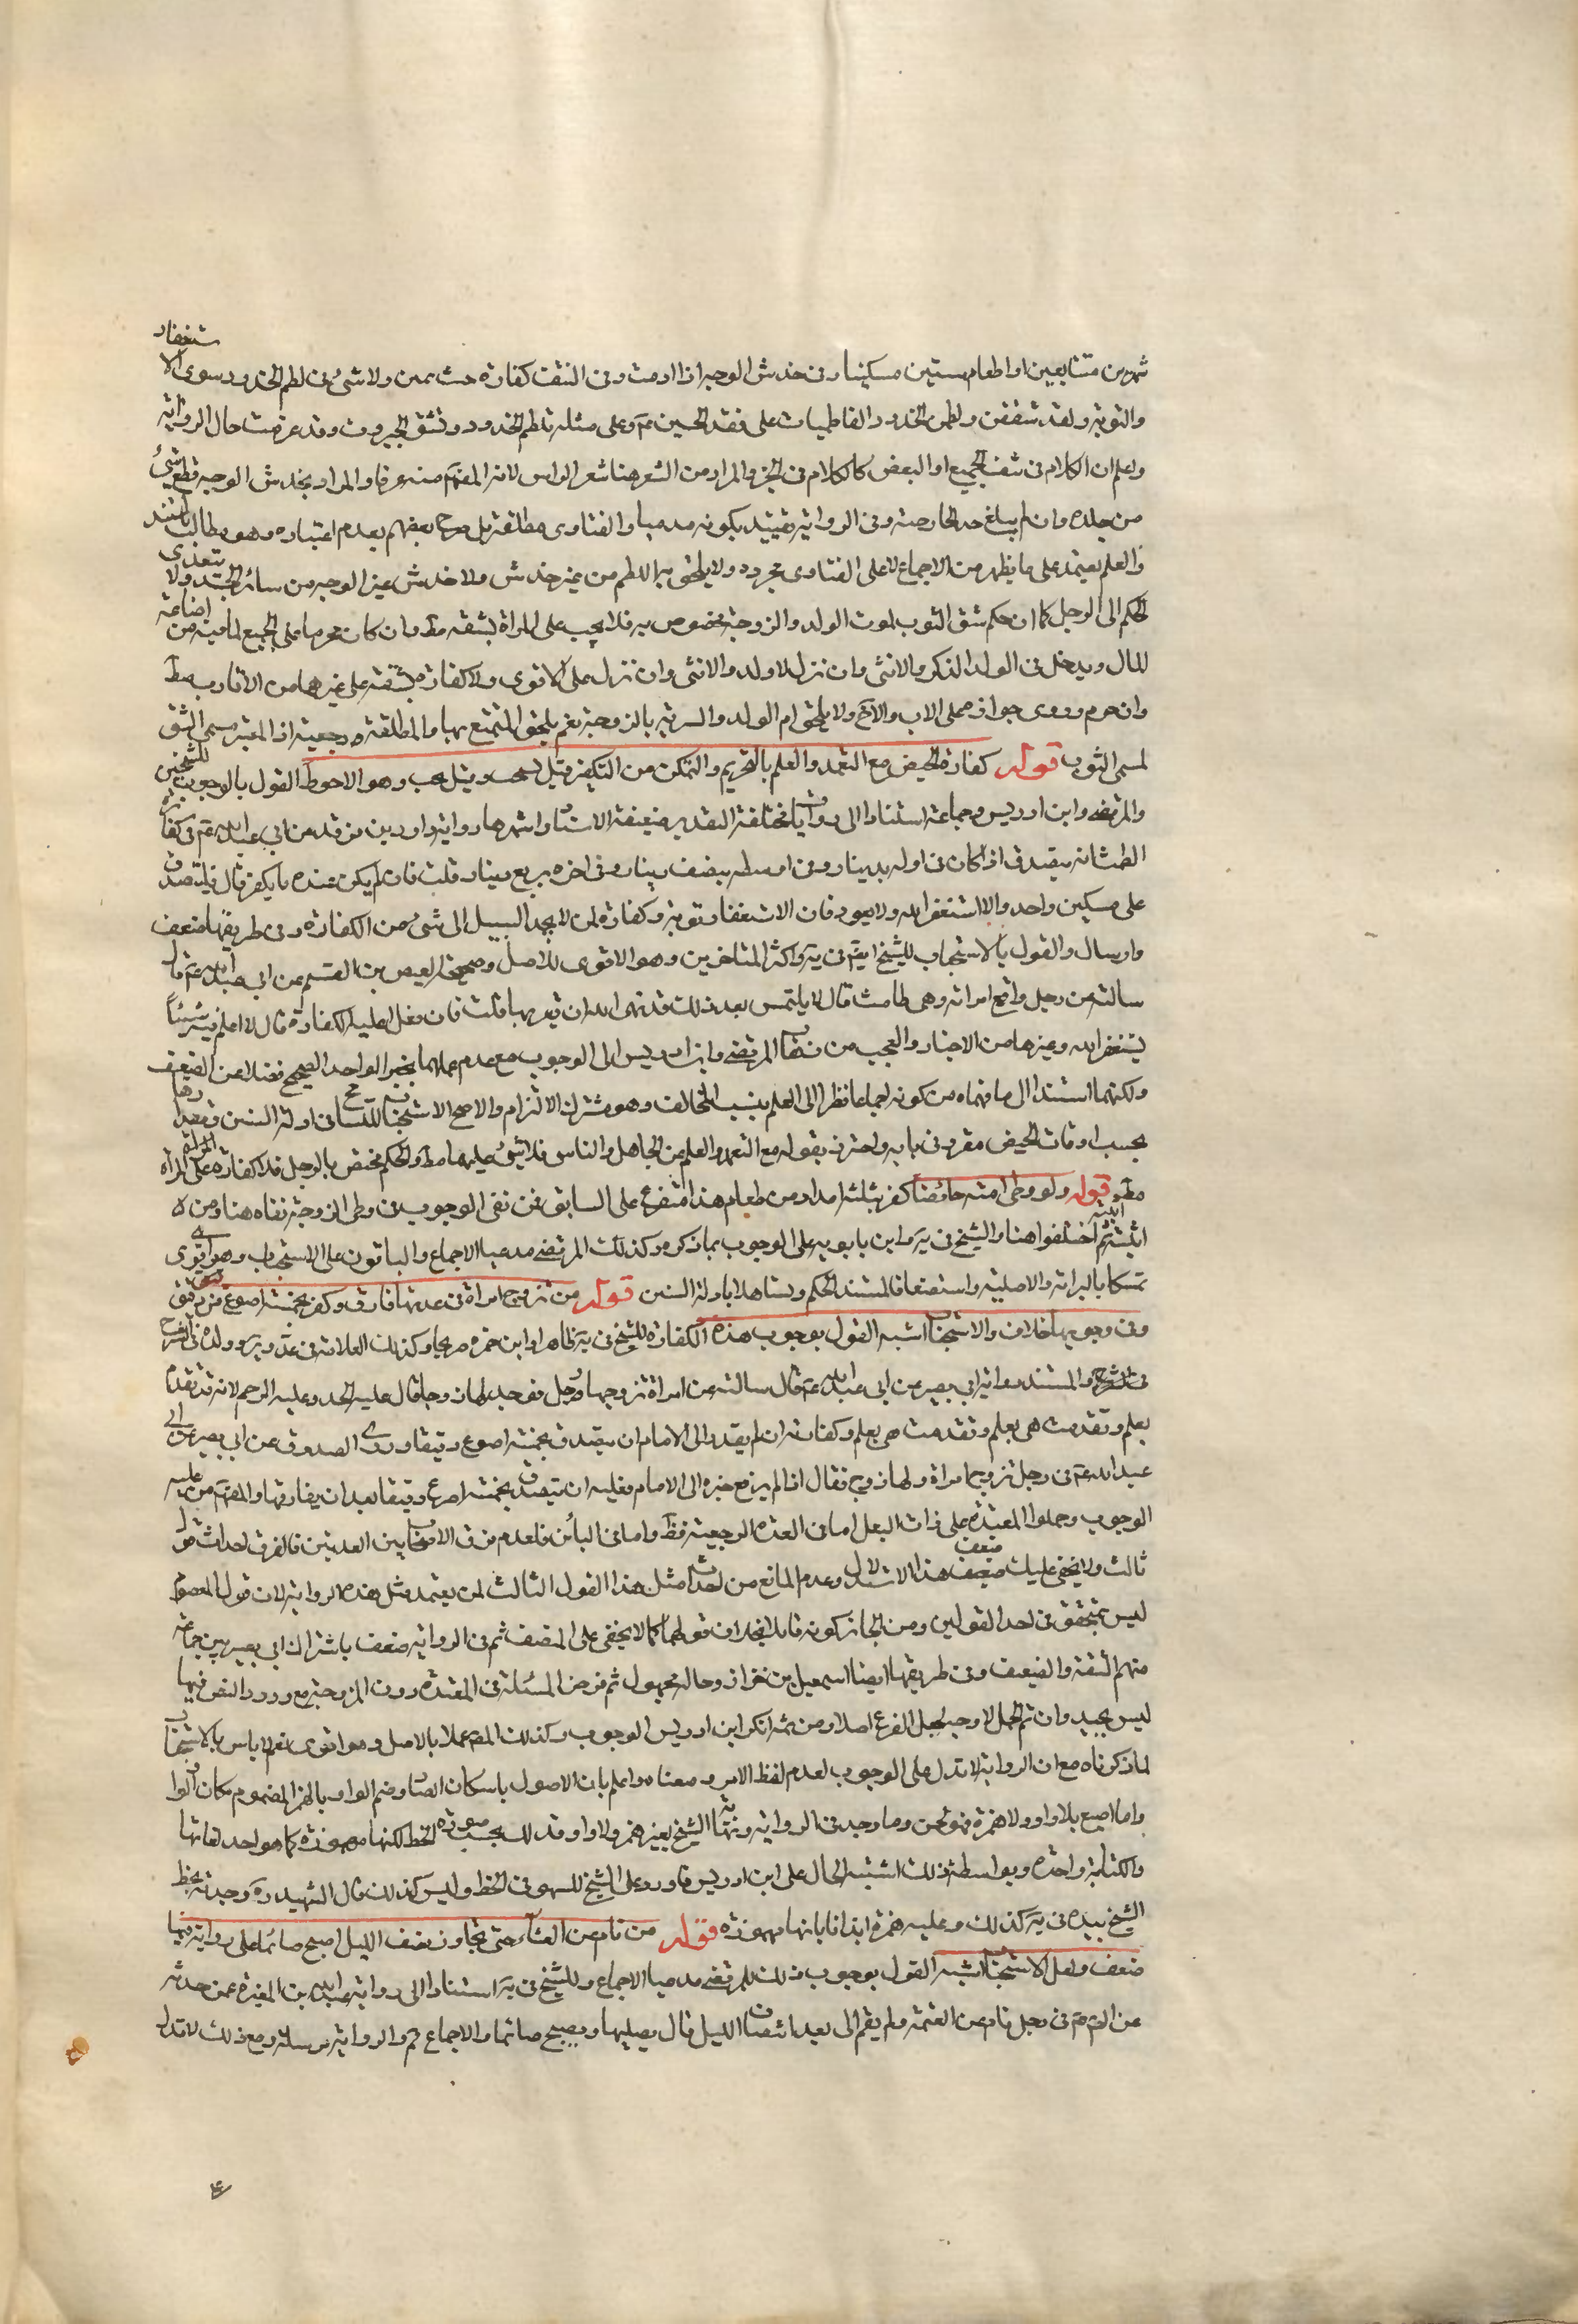 شهرين متتابعين او اطعام ستين مسكينا وفى خدش الوجه اذا ادمت وفى النتف كفارة حنث يمين ولا شئ فى لطم الخدود سوى الا
ستغفار
والتوبة ولقد شققن ولطمن الخدود الفاطميات على فقد الحسين عم وعلى مثله تلطم الخدود وتشق الجيوب وقد عرفت حال الرواية
واعلم ان الكلام فى نتف الجميع او البعض كالكلام فى الجز والمراد من الشعر هنا شعر الراس لانه المفهوم منه عرفا والمراد بخدش الوجه قطع شئ
من جلده وان لم يبلغ حد الخارصة وفى الرواية تقييده بكونه مدميا والفتاوى مطلقة بل صرح بعضهم بعدم اعتباره وهو مطالب بالمستند
والعلم يعتمد على ما يظهر من الاجماع لا على الفتاوى مجردة ولا يلحق به اللطم من غير خدش ولا خدش غير الوجه من سائر الجسد ولا يتعدى
الحكم الى الرجل كما ان حكم شق الثوب لموت الولد والزوجة مخصوص به فلا يجب على المراة بشقه مط وان كان محرما على الجميع لما فيه من اضاعة
المال ويدخل فى الولد الذكر والانثى وان نزل لا ولد والانثى وان نزل على الاقوى ولا كفارة بشقه على غيرهما من الاقارب مط
وان حرم وروى جوازه على الاب والاخ ولا يلحق ام الولد والسرية بالزوجة نعم يلحق المتمتع بها والمطلقة رجعية اذ المعتبر مسمى الشق
لمسمى الثوب قوله كفارة الحيض مع التعمد والعلم بالتحريم والتمكن من التكفير قيل تستحب وقيل تجب وهو الاحوط القول بالوجوب للشيخين
والمرتضى وابن ادريس وجماعة استنادا الى روايات مختلفة التقدير ضعيفة الاسناد اشهرها رواية داود بن فرقد عن ابى عبد الله عم فى كفارة
الطمث انه يتصدق اذا كان فى اوله بدينار وفى اوسطه بنصف دينار وفى اخره بربع دينار قلت فان لم يكن عنده ما يكفر قال فليتصدق
على مسكين واحد والا استغفر الله ولا يعود فان الاستغفار توبة وكفارة لمن لا يجد السبيل الى شئ من الكفارة وفى طريقها ضعف
وارسال والقول بالاستحباب للشيخ ايضا فى يه واكثر المتاخرين وهو الاقوى للاصل وصحيحة العيص بن القسم عن ابى عبد الله عم قال
سالته عن رجل واقع امراته وهى طامث قال لا يلتمس بعد ذلك قد نهى الله ان يقربها قلت فان فعل اعليه الكفارة قال لا اعلم فيه شيئا
يستغفر الله وغيرها من الاخبار والعجب من ذهاب المرتضى وابن ادريس الى الوجوب مع عدم عملهما بخبر الواحد الصحيح فضلا عن الضعيف
ولكنهما استندا الى ما فهماه من كونه اجماعا نظرا الى العلم بنسب المخالف وهو مشترك الالزام والاصح الاستحباب للتسامح فى ادلة السنن وتقديرها
بحسب اوقات الحيض مقرر فى بابه واحترز بقوله مع التعمد والعلم عن الجاهل والناسى فلا شئ عليهما مط والحكم مختص بالرجل فلا كفارة على المراة
مط قوله ولو وطى امته حائضا كفر بثلثة امداد من طعام هذا متفرع على السابق فمن نفى الوجوب فى وطى الزوجة نفاه هنا ومن
اثبته ثم اختلفوا هنا والشيخ فى يه وابن بابويه على الوجوب بما ذكره وكذلك المرتضى مدعيا الاجماع والباقون على الاستحباب وهو اقوى
تمسكا بالبرائة الاصلية واستضعافا لمستند الحكم وتساهلا بادلة السنن قوله من تزوج امراة فى عدتها فارق وكفر بخمسة اصوع من دقيق
وفى وجوبها خلاف والاستحباب اشبه القول بوجوب هذه الكفارة للشيخ فى يه ظاهرا وابن حمزة صريحا وكذلك العلامة فى عد ويرو وولده فى الشرح
والمستند رواية ابى بصير عن ابى عبد الله عم قال سالته عن امراة تزوجها رجل فوجد لها زوجا قال عليه الحد وعليها الرجم لانه قد تقدم
بعلم وتقدمت هى بعلم وكفارته ان لم يقدم الى الامام ان يتصدق بخمسة اصوع دقيقا وروى الصدوق عن ابى بصير عن ابى
عبد الله عم فى رجل تزوج امراة ولها زوج فقال اذا لم يرفع خبره الى الامام فعليه ان يتصدق بخمسة اصوع دقيقا بعد ان يفارقها والمفهوم من عليه
الوجوب وحملوا المعتدة على ذات البعل اما فى العدة الرجعية فظ واما فى البائن فلعدم فرق الاصحاب بين العدتين فالفرق احداث قول
ثالث ولا يخفى عليك ضعف هذا الاستدلال وعدم المانع من احداث مثل هذا القول الثالث لمن يعتمد مثل هذه الرواية لان قول المعصوم
ليس بمتحقق فى احد القولين ومن الجائز كونه قائلا بخلاف قولهما كما لا يخفى على المنصف ثم فى الرواية ضعف باشتراك ابى بصير بين جماعة
منهم الثقة والضعيف وفى طريقها ايضا اسمعيل بن مرار وحاله مجهول ثم فرض المسئلة فى المعتدة دون المزوجة مع ورود النص فيها
ليس بجيد وان تم الحمل لا وجه لجعل الفرع اصلا ومن ثم انكر ابن ادريس الوجوب وكذلك المص عملا بالاصل وهو اقوى نعم لا باس بالاستحباب
لما ذكرناه مع ان الرواية لا تدل على الوجوب لعدم لفظ الامر ومعناه واعلم بان الاصول باسكان الصاد وضم الواو بالهمز المضموم مكان الواو
واما اصع بلا واو ولا همزة فهو لحن وما وجد فى الرواية ونهاية الشيخ بغير همز ولا واو فذلك بحسب صورة الخط لكنها مهموزة كما هو احد لغاتها
والكتابة واحدة وبواسطة ذلك اشتبه الحال على ابن ادريس فاورد على الشيخ للسهو فى الخط وليس كذلك قال الشهيد ره وجدته بخط
الشيخ بيده فى يه كذلك وعليه همزة ايذانا بانها مهموزة قوله من نام عن العشاء حتى تجاوز نصف الليل اصبح صائما على رواية فيها
ضعف ولعل الاستحباب اشبه القول بوجوب ذلك للمرتضى مدعيا الاجماع وللشيخ فى يه استنادا الى رواية عبد الله بن المغيرة عمن حدثه
عن الص عم فى رجل نام عن العتمة ولم يقم الى بعد انتصاف الليل قال يصليها ويصبح صائما والاجماع مم والرواية مرسلة ومع ذلك لا تدل